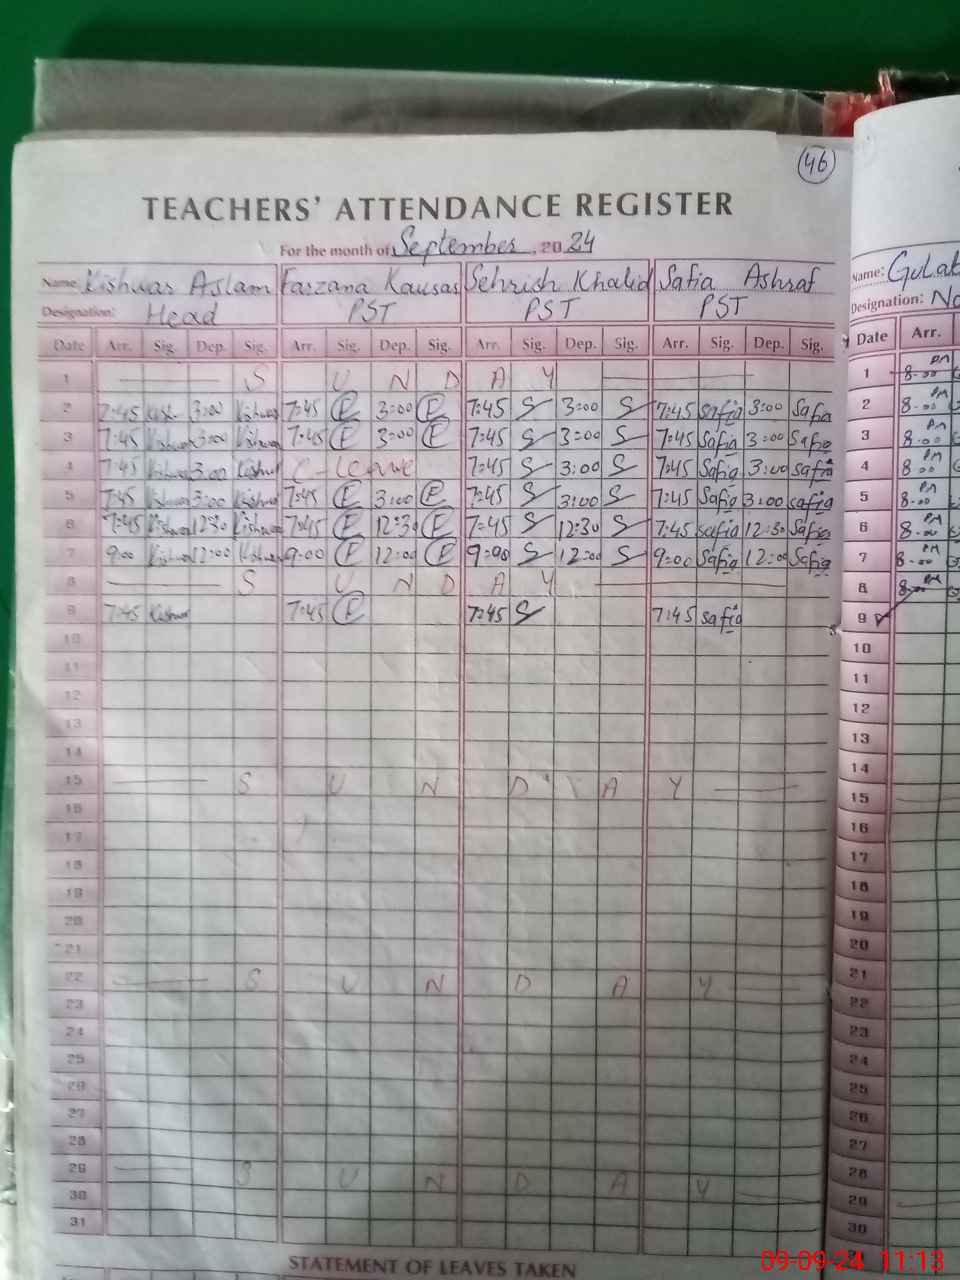 46
TEACHERS' ATTENDANCE REGISTER
For the month of September, 2024
Name: Kishwar Aslam Farzana Kausar Sehrish Khalid Safia Ashraf
Designation: Head PST PST PST
Date Arr. Sig. Dep. Sig. Arr. Sig. Dep. Sig. Arr. Sig. Dep. Sig. Arr. Sig. Dep. Sig.
1 S U N D A Y
2 7:45 Kish 3:00 Kishwar 7:45 F 3:00 F 7:45 S 3:00 S 7:45 Safia 3:00 Safia
3 7:45 Kishwar 3:00 Kishwar 7:45 F 3:00 F 7:45 S 3:00 S 7:45 Safia 3:00 Safia
4 7:45 Kishwar 3:00 Kishwar C-leave 7:45 S 3:00 S 7:45 Safia 3:00 Safia
5 7:45 Kishwar 3:00 Kishwar 7:45 F 3:00 F 7:45 S 3:00 S 7:45 Safia 3:00 Safia
6 7:45 Kishwar 12:30 Kishwar 7:45 F 12:30 F 7:45 S 12:30 S 7:45 Safia 12:30 Safia
7 9:00 Kishwar 12:00 Kishwar 9:00 F 12:00 F 9:00 S 12:00 S 9:00 Safia 12:00 Safia
8 S U N D A Y
9 7:45 Kishwar 7:45 F 7:45 S 7:45 Safia
10
11
12
13
14
15 S U N D A Y
16
17
18
19
20
21
22 S U N D A Y
23
24
25
26
27
28
29 S U N D A Y
30
31
STATEMENT OF LEAVES TAKEN
Name: Gulab
Designation: Na
Date Arr.
1 8-00 PM
2 8-00 PM
3 8-00 PM
4 8-00 PM
5 8-00 PM
6 8-00 PM
7 8-00 PM
8 8-00 PM
9
10
11
12
13
14
15
16
17
18
19
20
21
22
23
24
25
26
27
28
29
30
09-09-24 11:13